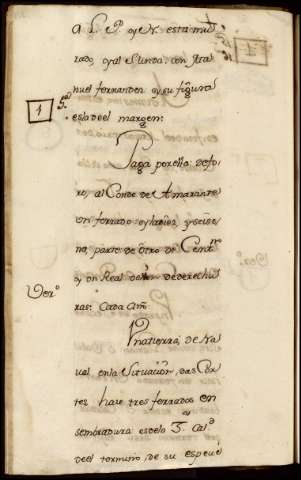 A L.te y N. esta mu
rado, y al Sur da con Ma
nuel fernandez, y su figura
es la del margen:
1
Paga por ella de fo
ro, al Conde de Amarante
un ferrado y [...] y seise
no, parte de otro de Cent.no
y un Real de [...] de derechu
ras: Cada Año
Ver.o
Una tierra, de Na
val en la Situacion, das Cor
tes, hace tres ferrados en
sembradura: es de la 3.a Cal.d
del termino, de su especie